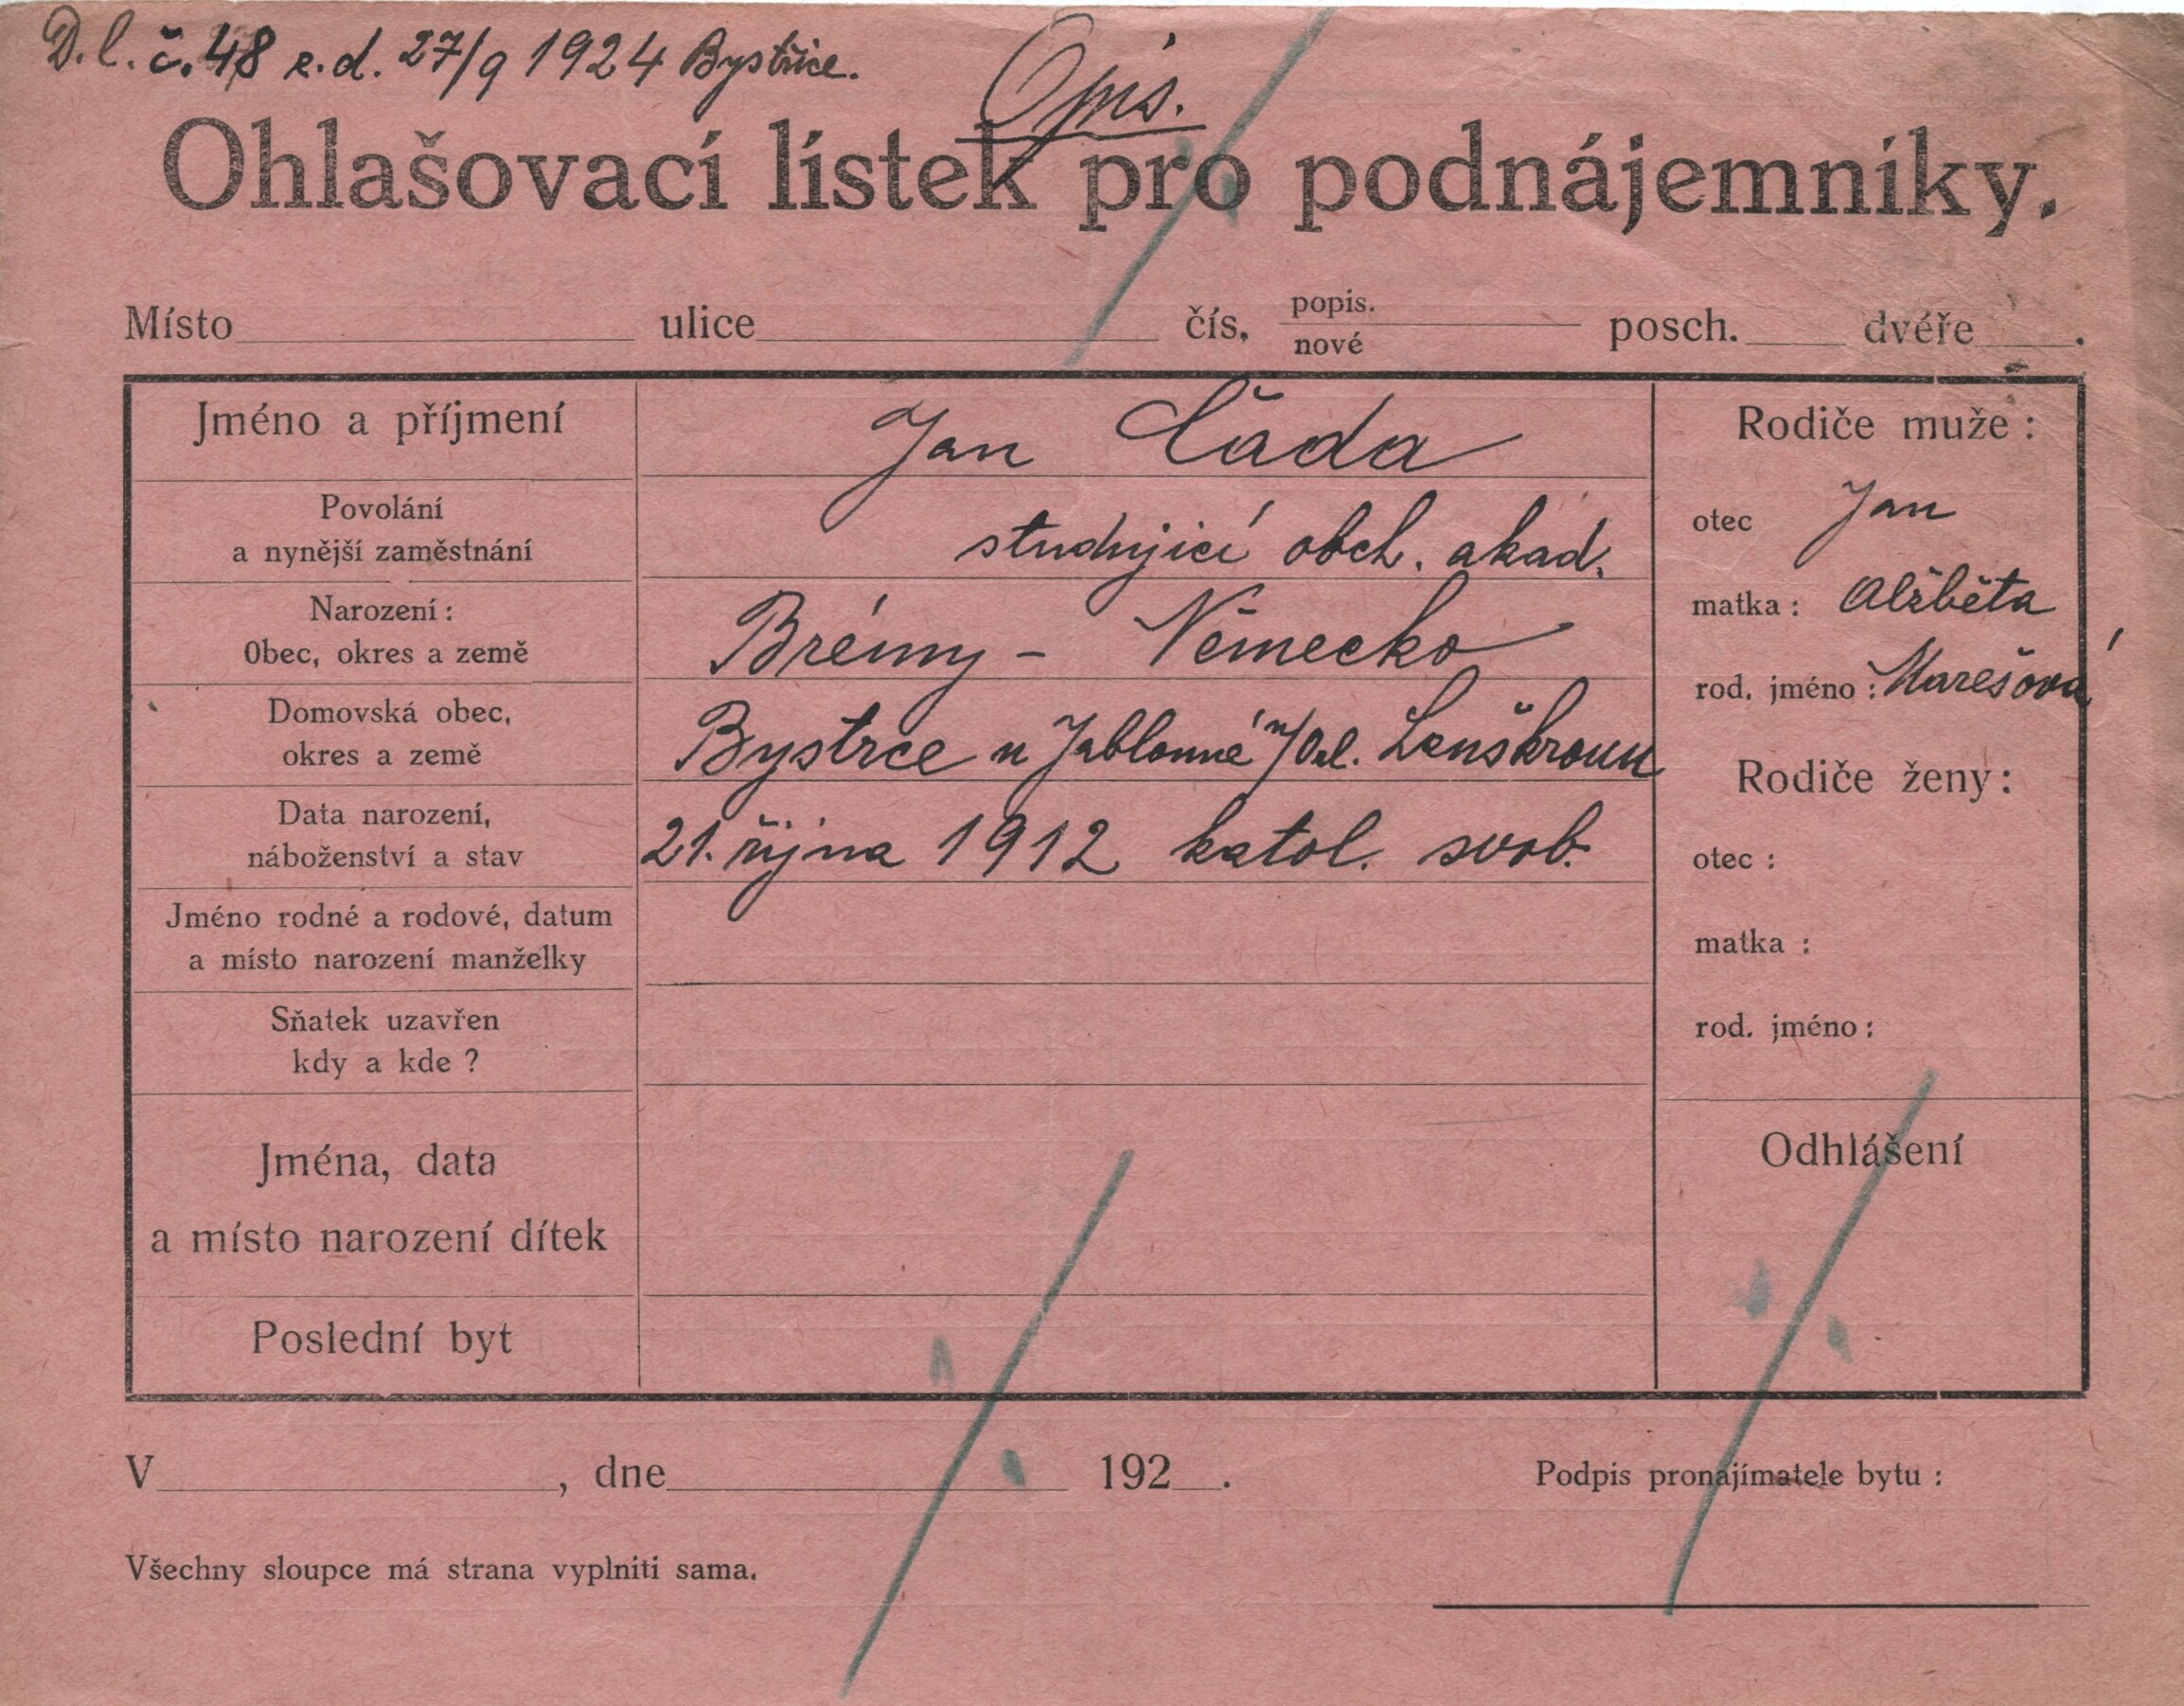 D. l. č. 48 z. d. 27/9 1924 Bystřice.
Opis.
Ohlašovací lístek pro podnájemníky.
Místo ulice čís. popis. nové posch. dvéře .
Jméno a příjmení Jan Čáda
Povolání
a nynější zaměstnání studující obch. akad.
Narození :
Obec, okres a země Brémy - Německo
Domovská obec,
okres a země Bystrce u Jablonné n/Orl. Lanškroun
Data narození,
náboženství a stav 21. října 1912 katol. svob.
Jméno rodné a rodové, datum
a místo narození manželky
Sňatek uzavřen
kdy a kde ?
Jména, data
a místo narození dítek
Poslední byt
Rodiče muže :
otec Jan
matka : Alžběta
rod. jméno : Marešová
Rodiče ženy :
otec :
matka :
rod. jméno :
Odhlášení
V , dne 192 .
Podpis pronajímatele bytu :
Všechny sloupce má strana vyplniti sama.